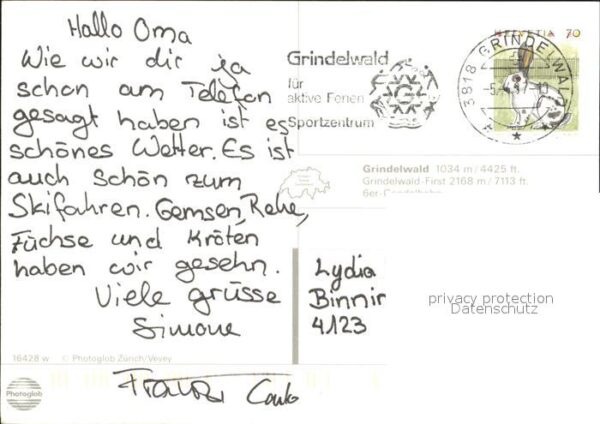 Hallo Oma
Wie wir dir ja
schon am Telefon
gesagt haben ist es
schönes Wetter. Es ist
auch schön zum
Skifahren. Gemsen, Rehe,
Füchse und Kröten
haben wir gesehn.
Viele grüsse
Simone
16428 w © Photoglob Zürich/Vevey
Photoglob
Grindelwald
für
aktive Ferien
Sportzentrum
HELVETIA 70
3818 GRINDELWALD
Grindelwald 1034 m / 4425 ft.
Grindelwald-First 2168 m / 7113 ft.
6er-Gondelbahn
Lydia
Binnin
4123
privacy protection
Datenschutz